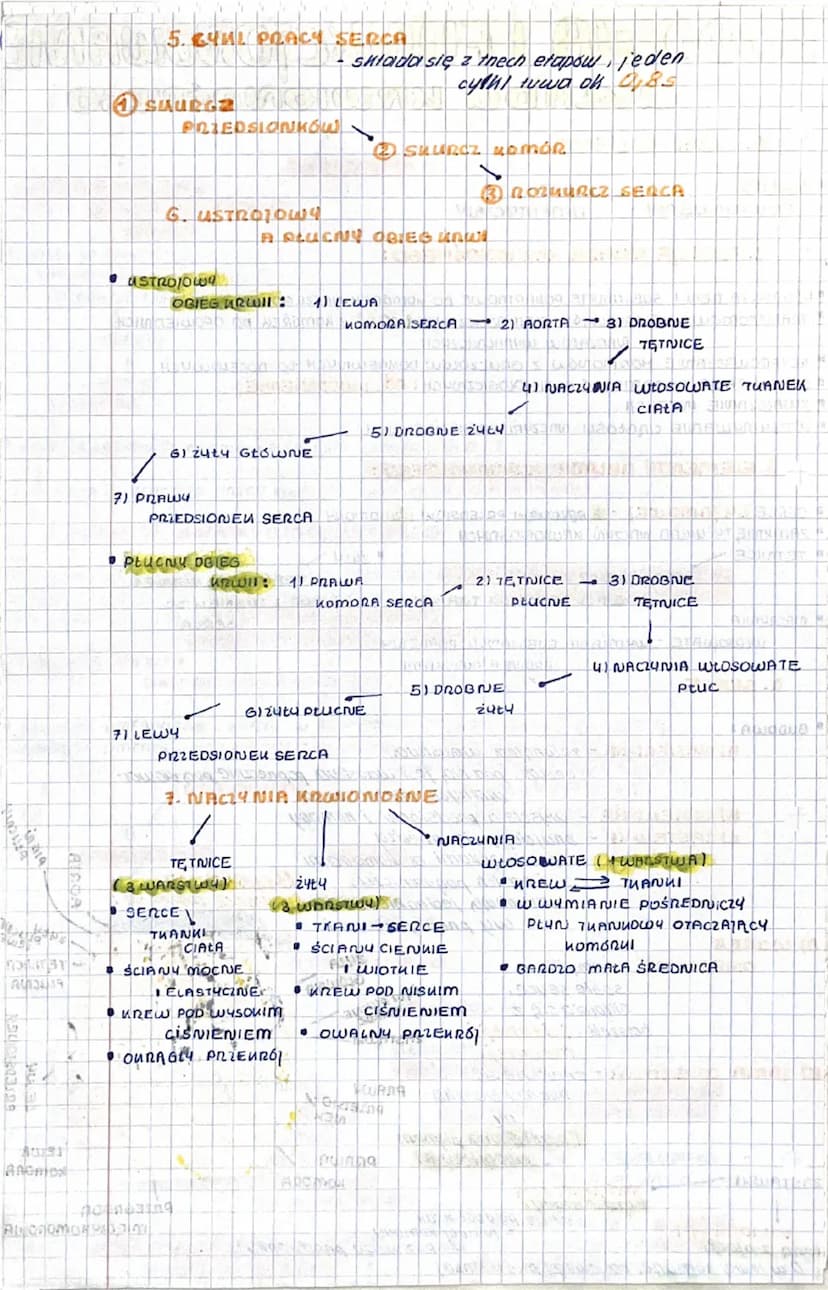 5. CYKL PRACY SERCA
- składa się z trzech etapów, jeden
cykl trwa ok 0,8s
① SKURCZ
PRZEDSIONKÓW
② SKURCZ KOMÓR
③ ROZKURCZ SERCA
6. USTROJOWY
A PŁUCNY OBIEG KRWI
• USTROJOWY
OBIEG KRWII: 1) LEWA
KOMORA SERCA → 2) AORTA → 3) DROBNE
TĘTNICE
4) NACZYNIA WŁOSOWATE TKANEK
CIAŁA
5) DROBNE ŻYŁY
6) ŻYŁY GŁÓWNE
7) PRAWY
PRZEDSIONEK SERCA
• PŁUCNY OBIEG
KRWII: 1) PRAWA
KOMORA SERCA
2) TĘTNICE → 3) DROBNE
PŁUCNE TĘTNICE
4) NACZYNIA WŁOSOWATE
PŁUC
5) DROBNE
ŻYŁY
6) ŻYŁY PŁUCNE
7) LEWY
PRZEDSIONEK SERCA
7. NACZYNIA KRWIONOŚNE
TĘTNICE
(3 WARSTWY)
• SERCE
TKANKI
CIAŁA
• ŚCIANY MOCNE
I ELASTYCZNE
• KREW POD WYSOKIM
CIŚNIENIEM
• OKRĄGŁY PRZEKRÓJ
ŻYŁY
(3 WARSTWY)
• TKANI → SERCE
• ŚCIANY CIENKIE
I WIOTKIE
• KREW POD NISKIM
CIŚNIENIEM
• OWALNY PRZEKRÓJ
NACZYNIA
WŁOSOWATE (1 WARSTWA)
• KREW ⇄ TKANKI
• W WYMIANIE POŚREDNICZY
PŁYN TKANKOWY OTACZAJĄCY
KOMÓRKI
• BARDZO MAŁA ŚREDNICA